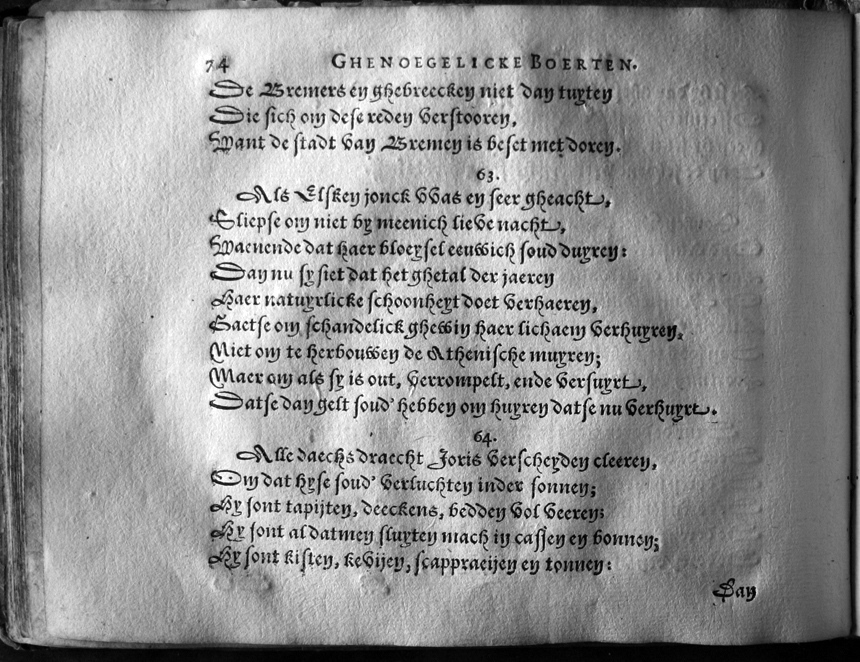 74 GHENOEGELICKE BOERTEN.
De Bremers en ghebreecken niet dan tuyten
Die sich om dese reden verstooren,
Want de stadt van Bremen is beset met doren.
63.
Als Elsken jonck VVas en seer gheacht,
Sliepse om niet by meenich lieve nacht,
Waenende dat haer bloeysel eeuwich soud duyren:
Dan nu sy siet dat het ghetal der jaeren
Haer natuyrlicke schoonheyt doet verhaeren,
Gaetse om schandelick ghewin haer lichaem verhuyren,
Niet om te herbouwen de Athenische muyren;
Maer om als sy is out, verrompelt, ende versuyrt,
Datse dan gelt soud' hebben om huyren datse nu verhuyrt.
64.
Alle daechs draecht Joris verscheyden cleeren,
Om dat hyse soud' verluchten inder sonnen;
Hy sont tapijten, deeckens, bedden vol veeren;
Hy sont al datmen sluyten mach in cassen en bonnen;
Hy sont kisten, kevijen, scappraeijen en tonnen:
Dan